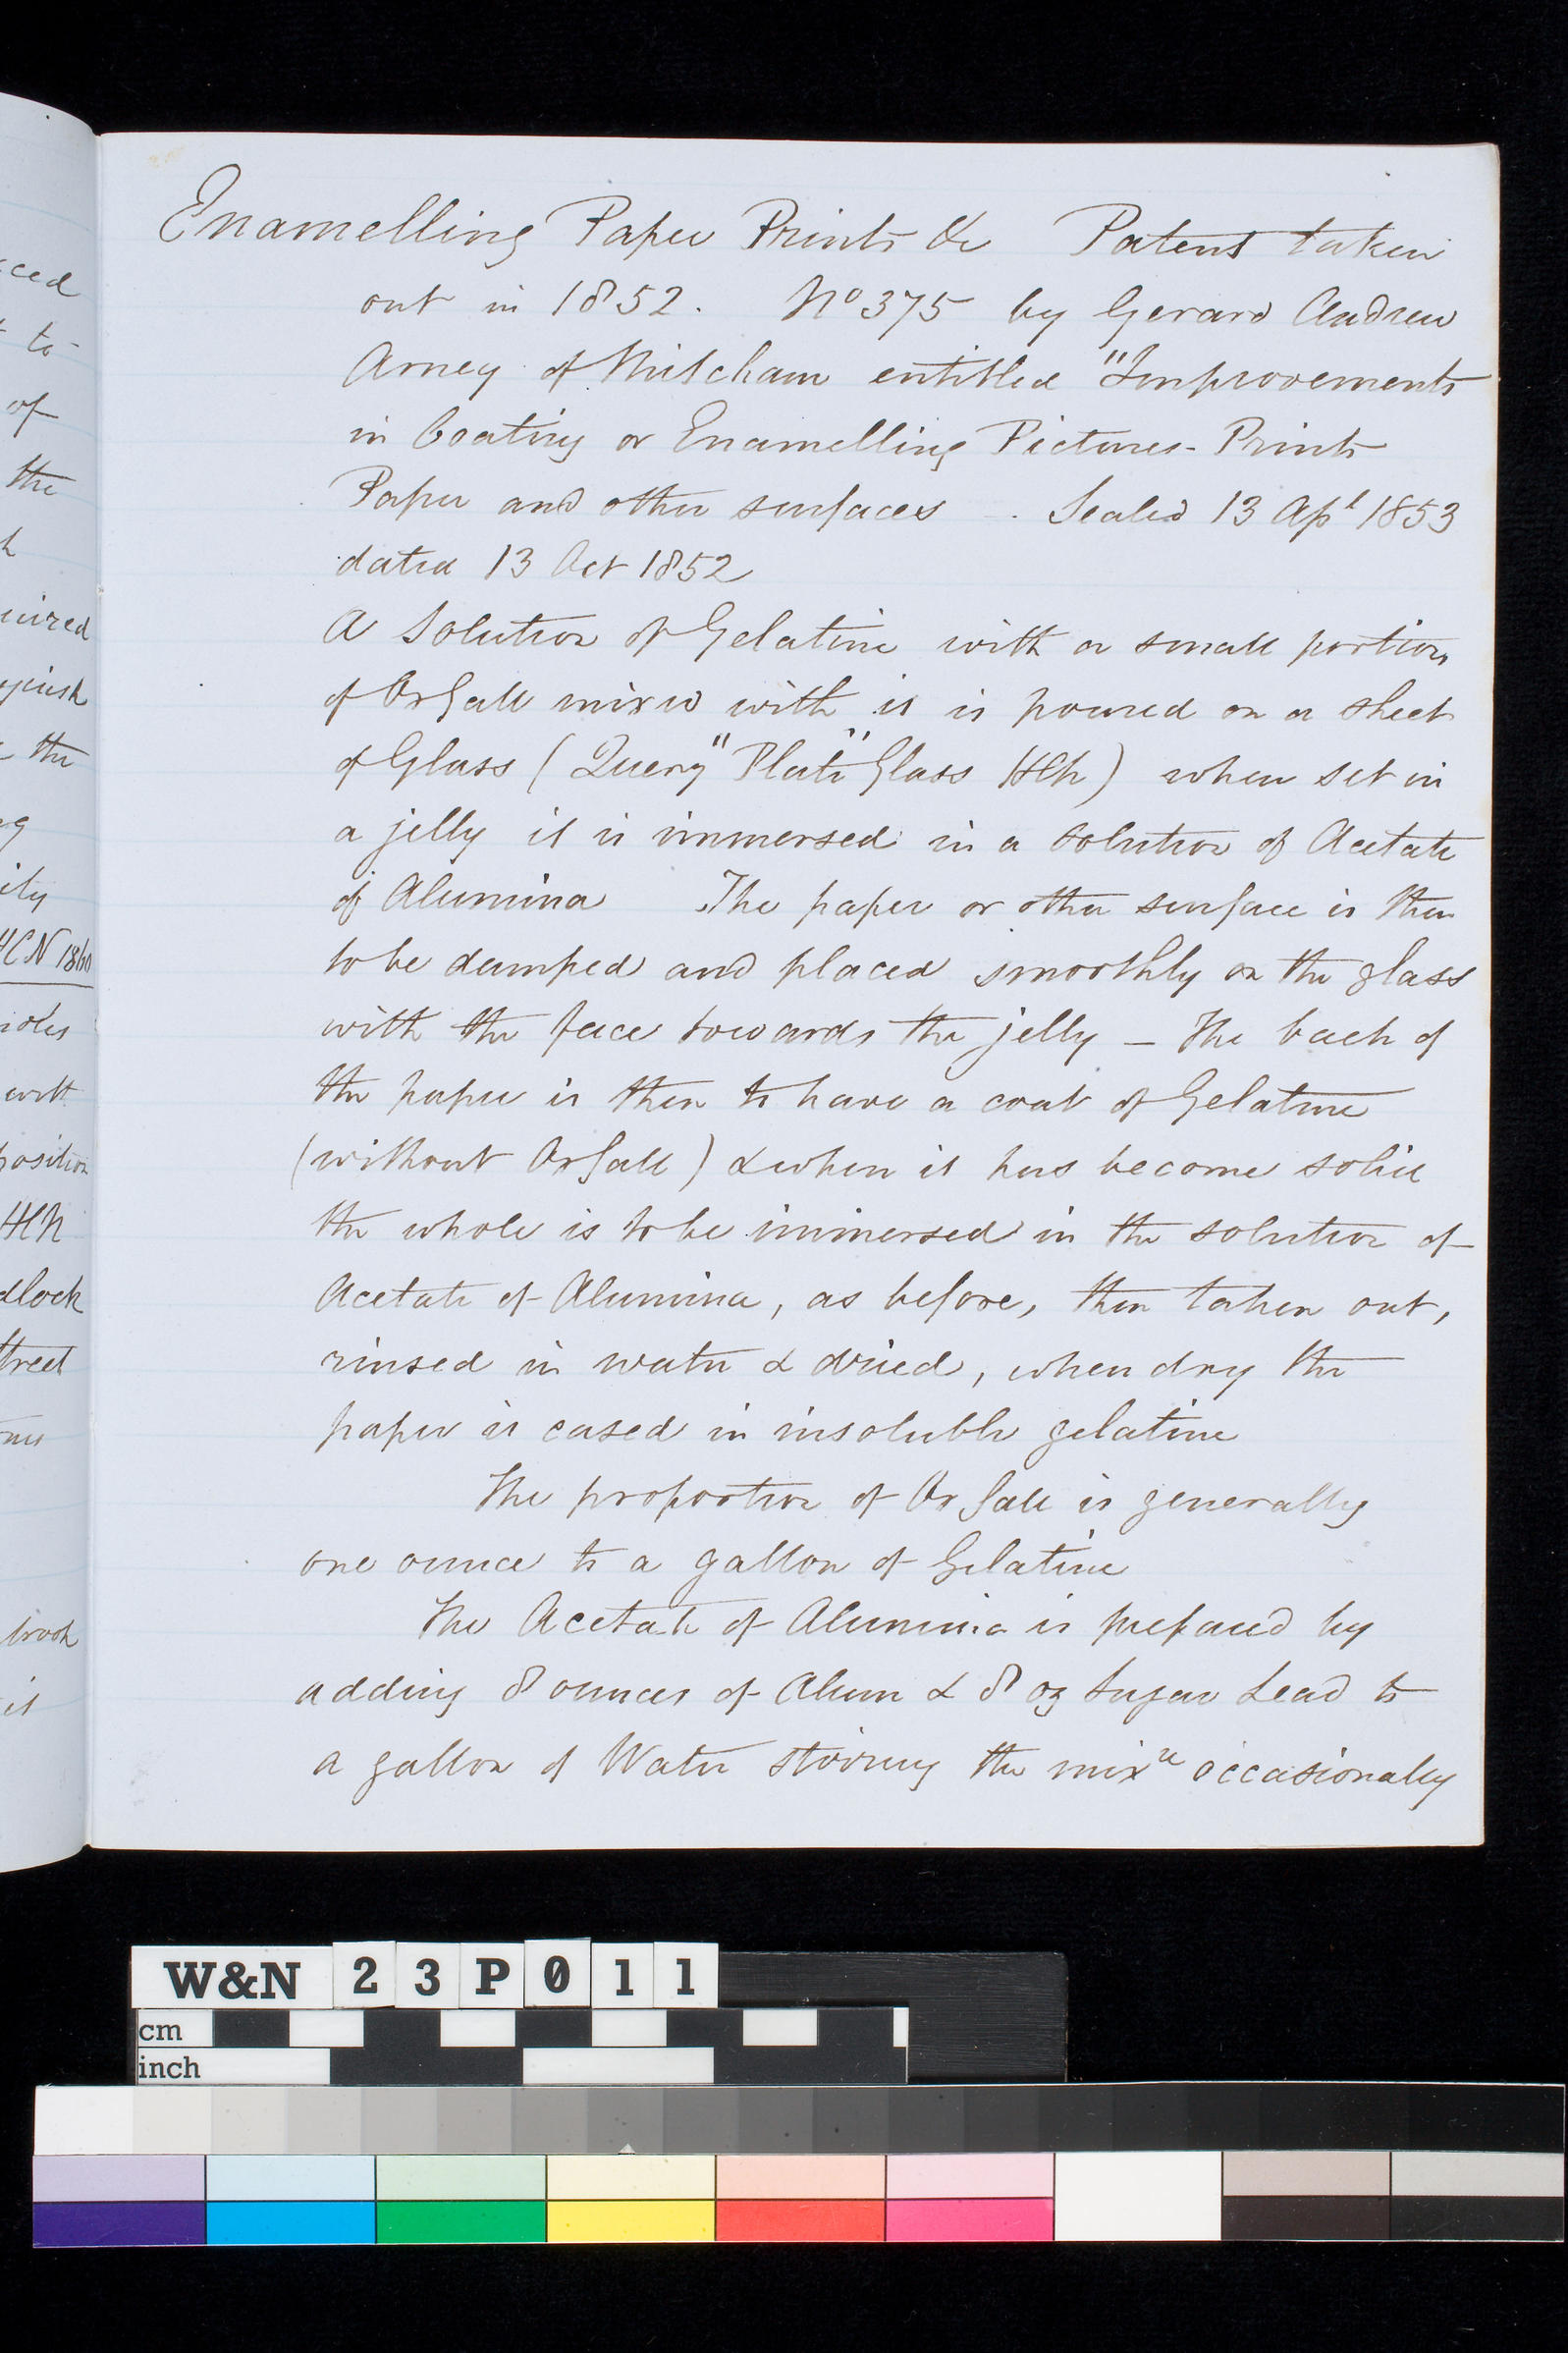 Enamelling Paper Prints &c Patent taken
out in 1852. No 375 by Gerard Andrew
Arney of Mitcham entitled "Improvements
in Coating or Enamelling Pictures - Prints
Paper and other surfaces . Sealed 13 Apl 1853
dated 13 Oct 1852
A Solution of Gelatine with a small portion
of Ox Gall mixed with it is poured on a sheet
of Glass (Query "Plate" Glass HCN) when set in
a jelly it is immersed in a solution of Acetate
of Alumina The paper or other surface is then
to be damped and placed smoothly on the glass
with the face towards the jelly – The back of
the paper is then to have a coat of Gelatine
(without Ox Gall) & when it has become solid
the whole is to be immersed in the solution of
Acetate of Alumina, as before, then taken out,
rinsed in water & dried, when dry the
paper is cased in insoluble gelatine
The proportion of Ox Gall is generally
one ounce to a gallon of Gelatine
The Acetate of Alumina is prepared by
adding 8 ounces of Alum & 8 oz Sugar Lead to
a gallon of Water stirring the mixre occasionally
ced
to
of
the
uired
the
ity
HCN 1860
with
position
HCN
dlock
treet
brook
it
W&N 23P011
cm
inch